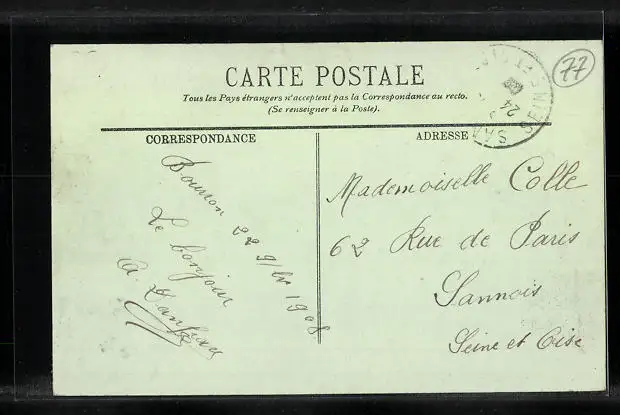 CARTE POSTALE
Tous les Pays étrangers n'acceptent pas la Correspondance au recto.
(Se renseigner à la Poste).
CORRESPONDANCE
ADRESSE
77
24
SEINE
Bourron 22 9/br 1908
Le bonjour
Mademoiselle Colle
62 Rue de Paris
Sannois
Seine et Oise